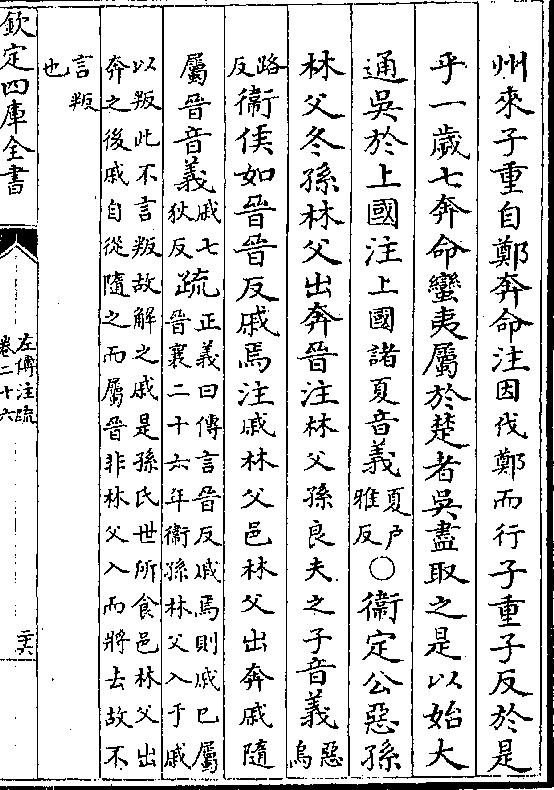 州來子重自鄭奔命注因伐鄭而行子重子反於是
乎一歲七奔命蠻夷屬於楚者吳盡取之是以始大
通吳於上國注上國諸夏音義夏户雅反〇衞定公惡孫
林父冬孫林父出奔晉注林父孫良夫之子音義惡烏
路反衞侯如晉晉反戚焉注戚林父邑林父出奔戚隨
屬晉音義戚七狄反疏正義曰傳言晉反戚焉則戚已屬晉襄二十六年衞孫林父入于戚
以叛此不言叛故解之戚是孫氏世所食邑林父出奔之後戚自從隨之而屬晉非林父入而將去故不
言叛也
欽定四庫全書
左傳注疏
卷二十六
三六